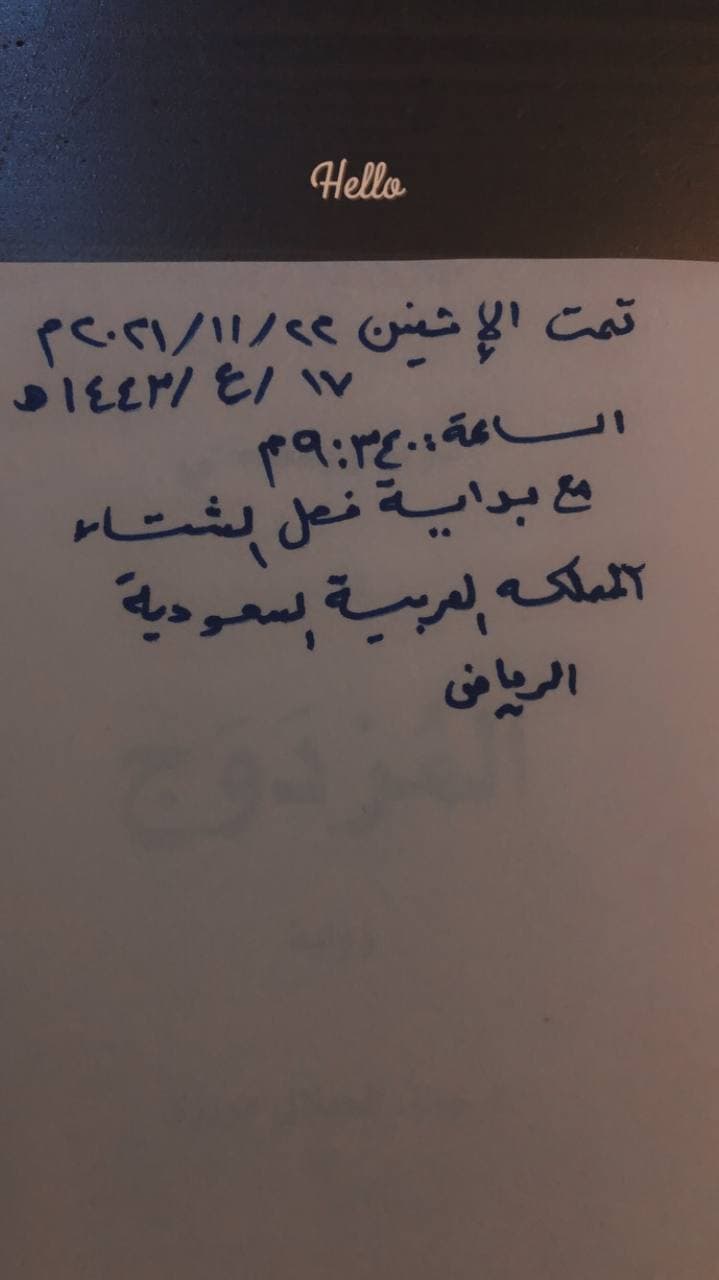 Hello
تمت الإثنين ٢٢/١١/٢٠٢١م
١٧ /ع /١٤٤٣هـ
الساعة: ٩:٣٤م
مع بداية فصل الشتاء
المملكه العربية السعودية
الرياض
المزدوج
رواية